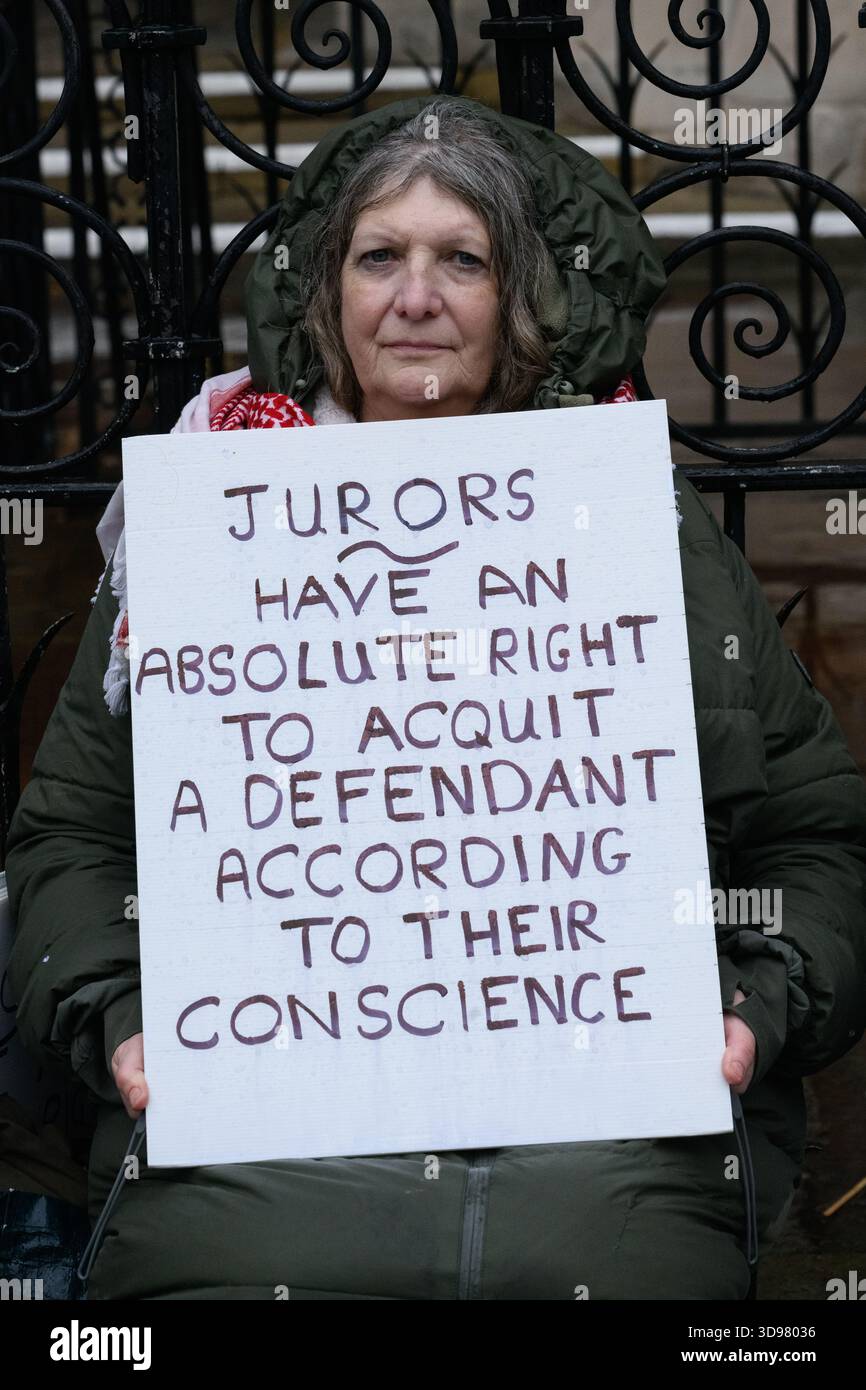 JURORS
HAVE AN
ABSOLUTE RIGHT
TO ACQUIT
A DEFENDANT
ACCORDING
TO THEIR
CONSCIENCE
alamy
alamy
Image ID: 3D98036
www.alamy.com